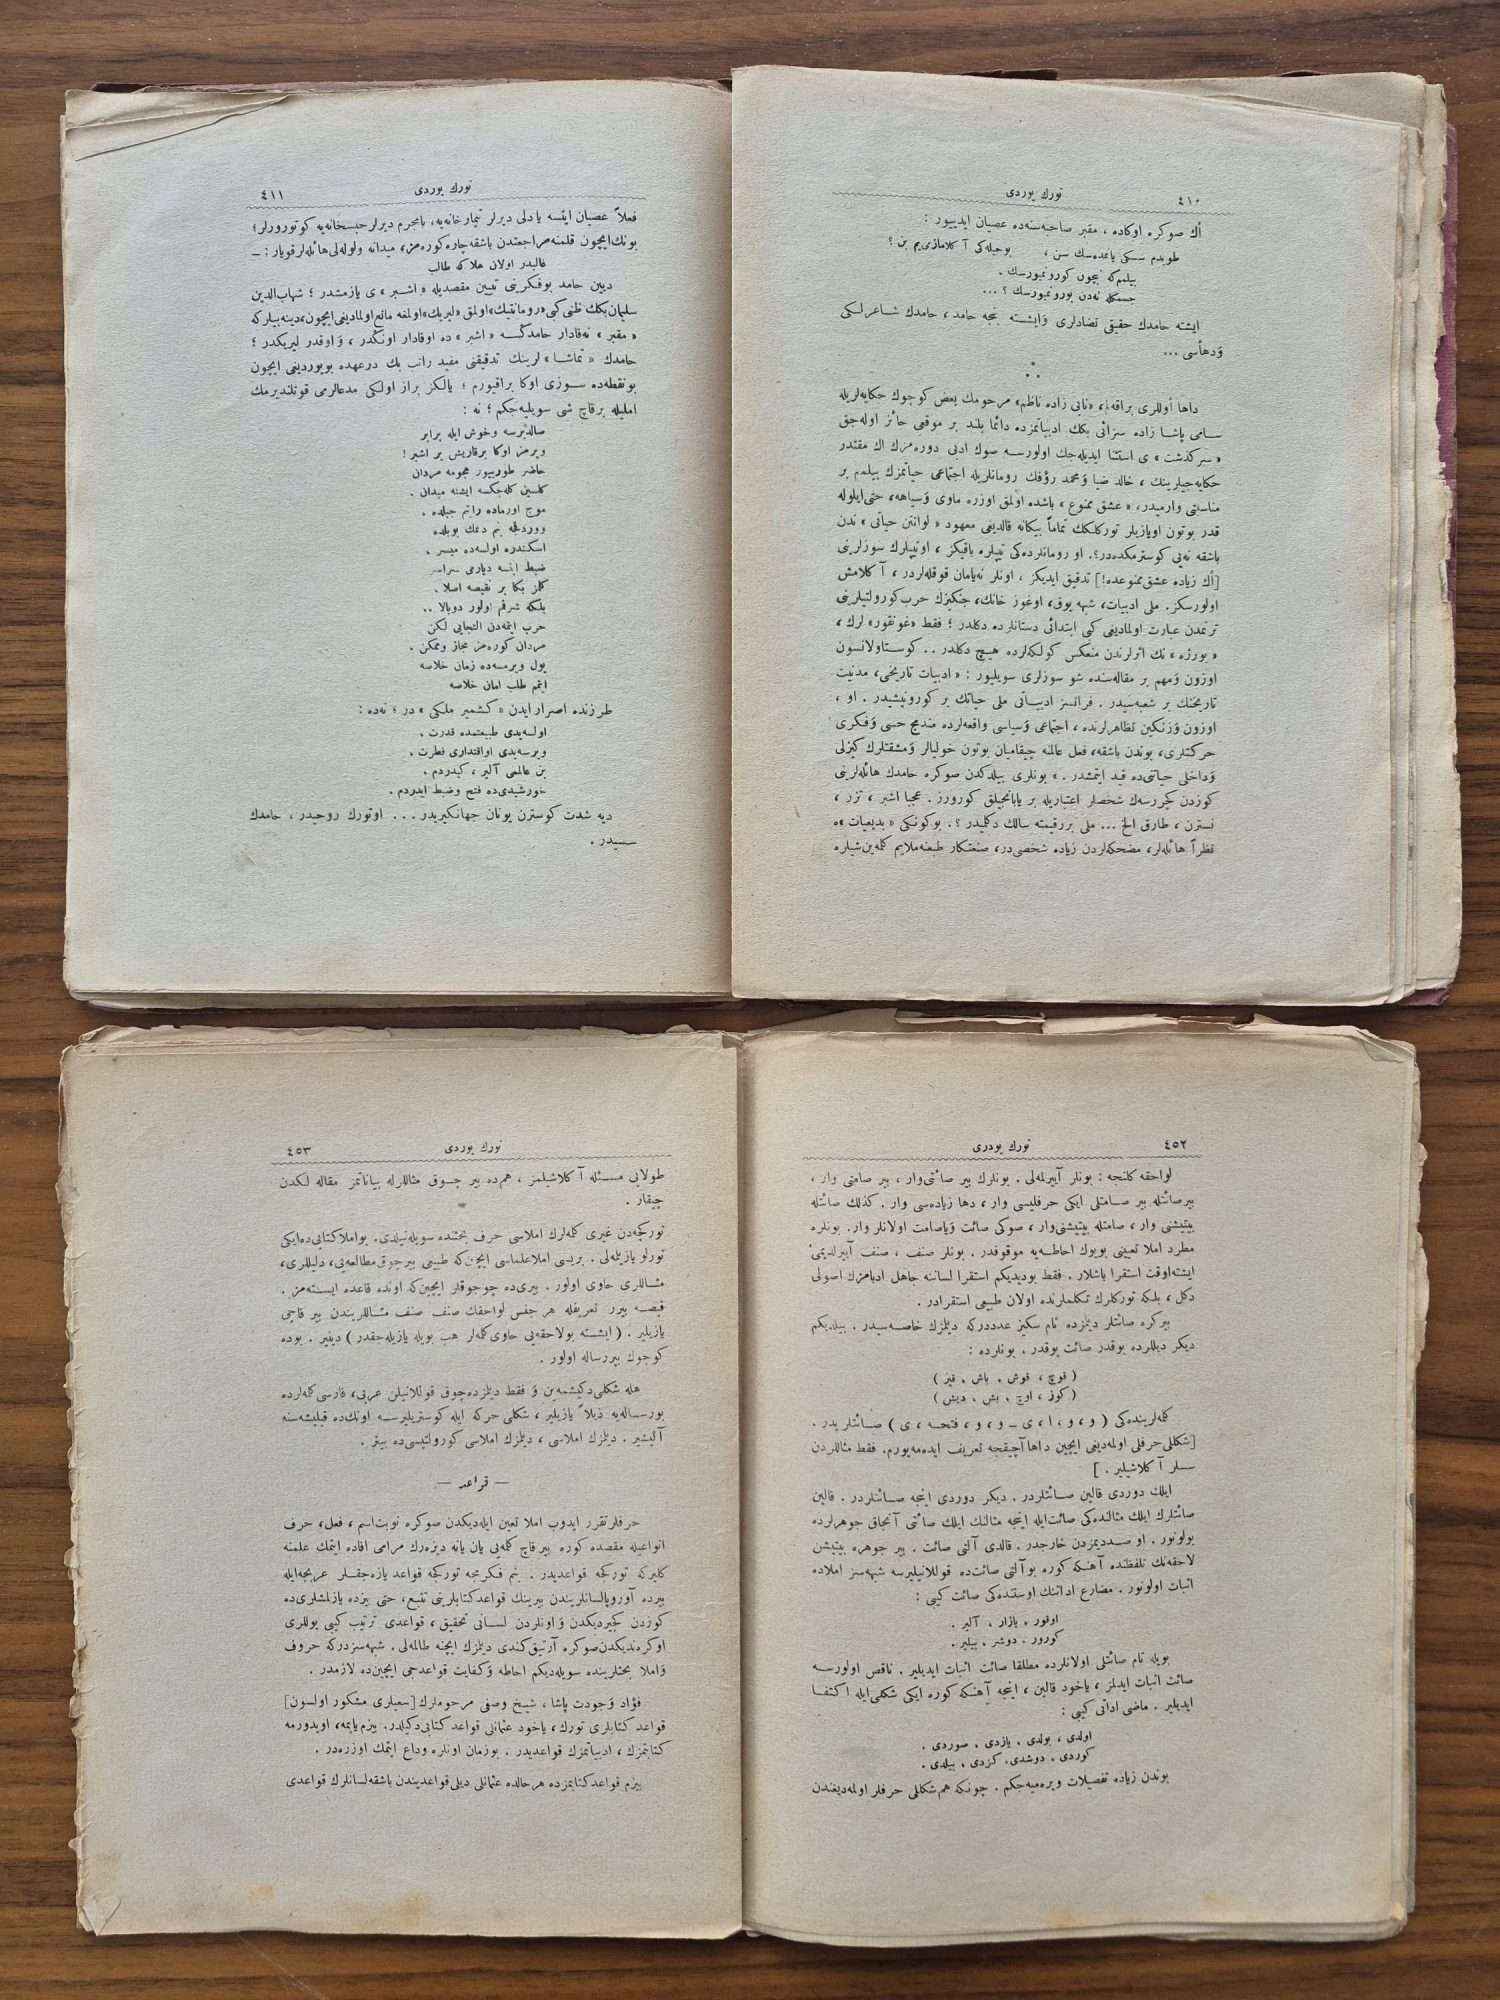 ٤١٠
تورك يوردى
أك صوكره اوكاده ، مقبر صاحبه‌سنه‌ده عصيان ايدييور :
طويدم سسكى يانمده‌سك سن ،
بيلمم كه نيچون كورونميورسك .
جسمكله نه‌دن بورونميورسك ؟ ...
ايشته حامدك حقيقى تضادلرى وٓايشته نجه حامد ، حامدك شاعرلكى
وٓدهاسى ...
داها أوللرى براقه‌لم ، «نابى زاده ناظم» مرحومك بعض كوچوك حكايه‌لريله
سامى پاشا زاده سزائى بكك ادبياتمزده دائما بلند بر موقعى حائز اوله‌جق
« سركذشت » ى استثنا ايديله‌جك اولورسه صوك ادبى دوره‌مزك اك مقتدر
حكايه‌جيلرينك ، خالد ضيا وٓمحمد رؤفك رومانلريله اجتماعى حياتمزك بيلمم بر
مناسبتى وارميدر، « عشق ممنوع » باشده اولمق اوزره ماوى وٓسياهه، حتى ايلوله
قدر بوتون اويازيلر توركلكك تماماً بيكانه قالديغى معهود « لوانتن حياتى » ندن
باشقه نه‌يى كوسترمكده‌در؟. او رومانلرده‌كى تيپلره باقيكز ، اوتيپلرك سوزلرينى
[اك زياده عشق ممنوعده!] تدقيق ايديكز ، اونلر نه‌يامان قوقله‌لردر ، آكلامش
اولورسكز. ملى ادبيات، شبهه يوق، اوغوز خانك، جنكيزك حرب كورولتيلرينى
ترنمدن عبارت اولماديغى كبى ابتدائى دستانلرده دكلدر ؛ فقط «غونقور» لرك ،
« بورژه » نك اثرلرندن منعكس كولكه‌لرده هيچ دكلدر .. كوستاولانسون
اوزون وٓمهم بر مقاله‌سنده شو سوزلرى سويليور : « ادبيات تاريخى، مدنيت
تاريخنك بر شعبه‌سيدر . فرانسز ادبياتى ملى حياتك بر كورونيشيدر . او ،
اوزون وٓزنكين تظاهرلرنده ، اجتماعى وٓسياسى واقعه‌لرده مندمج حسى وٓفكرى
حركتلرى، بوندن باشقه، فعل عالمنه چيقاميان بوتون خوليالر وٓمشقتلرك كيزلى
وٓداخلى حياتنى‌ده قيد ايتمشدر . » بونلرى بيلدكدن صوكره حامدك هائله‌لرينى
كوزدن كچيررسه‌ك شخصلر اعتباريله بر يابانجيلق كورورز . عجبا اشبر ، تزر ،
نسترن ، طارق الخ ... ملى بررقيمته مالك دكليدر ؟. بوكونكى « بديعيات »ه
نظراً هائله‌لر، مضحكه‌لردن زياده شخصى‌در، صنعتكار طبعنه ملايم كله‌ين شيلره
٤١١
تورك يوردى
فعلاً عصيان ايتسه يادلى ديرلر تيمارخانه‌يه، يامجرم ديرلر حبسخانه‌يه كوتورورلر؛
بونك ايچون قلمنه مراجعتدن باشقه چاره كوره‌مز، ميدانه ولوله‌لى هائله‌لر قويار : ـ
غالبدر اولان هلاكه طالب
ديين حامد بوفكرينى تبيين مقصديله « اشبر » ى يازمشدر ؛ شهاب‌الدين
سليمان بكك ظنى كبى «رومانتيك» اولمق «ليريك» اولمغه مانع اولماديغى ايچون، دينه‌بيلركه
« مقبر » نه‌قادار حامدكسه « اشبر » ده اوقادار اونكدر ، وٓاوقدر ليريكدر ؛
حامدك « تماشا » لرينك تدقيقنى مفيد راتب بك درعهده بويورديغى ايچون
بونقطه‌ده سوزى اوكا براقيورم ؛ يالكز براز اولكى مدعالرمى قوتلنديرمك
امليله برقاچ شى سويليه‌جكم ؛ نه :
صالديرسه وخوش ايله برابر
ويرمز اوكا برقاريش بر اشبر !
حاضر طورييور هجومه مردان
كلسين كله‌جكسه ايشته ميدان .
موج اورماده رايتم جبلده .
ووردقجه بنم دمك بويلده
اسكندره اولسه‌ده ميسر .
ضبط ايتسه ديارمى سراسر
كلمز بكا بر نقيصه اصلا .
بلكه شرفم اولور دوبالا ..
حرب ايتمه‌دن التجايى لكن
مردان كوره‌مز مجاز وممكن .
يول ويرمسه‌ده زمان خلاصه
ايتمم طلب امان خلاصه
طرزنده اصرار ايدن « كشمير ملكى » در ؛ نه‌ده :
اولسه‌يدى طبيعتمده قدرت .
ويرسه‌يدى اواقتدارى فطرت .
بن عالمى آلير ، كيدردم .
خورشيدى‌ده فتح وضبط ايدردم .
ديه شدت كوسترن يونان جهانگيريدر ... اوتورك روحيدر ، حامدك
سسيدر .
٤٥٢
تورك يودرى
لواحقه كلنجه : بونلر آييرلمه‌لى . بونلرك بير صائتى‌وار ، بير صامتى وار ،
بيرصائتله بير صامتلى ايكى حرفليسى وار ، دها زياده‌سى وار . كذلك صائتله
بيتيشنى وار ، صامتله بيتيشنى‌وار ، صوكى صائت وياصامت اولانلر وار. بونلره
مطرد املا تعيينى بويوك احاطه‌يه موقوفدر . بونلر صنف ، صنف آييرلديمى
ايشته‌اوقت استقرا باشلار . فقط بوديديكم استقرا لساننه جاهل ادبامزك اصولى
دكل ، بلكه توركلرك تكلملرنده اولان طبيعى استقرادر .
بيركره صائتلر ديلمزده تام سكيز عدددركه ديلمزك خاصه‌سيدر . بيلديكم
ديكر ديللرده بوقدر صائت يوقدر . بونلرده :
( قوچ ، قوش ، باش ، قيز )
( كوز ، اوچ ، بش ، ديش )
كله‌لرينده‌كى ( و ، و ، ا ، ى ـ و ، و ، فتحه ، ى ) صائتلريدر .
[شكللى حرفلى اولمه‌ديغى ايچين داها آچيقجه تعريف ايده‌مه‌يورم. فقط مثاللردن
سسلر آكلاشيلير . ]
ايلك دوردى قالين صائتلردر . ديكر دوردى اينجه صائتلردر . قالين
صائتلرك ايلك مثالنده‌كى صائت‌ايله اينجه مثالنك ايلك صائتى آنجاق جوهرلرده
بولونور . او صددیمزدن خارجدر . قالدى آلتى صائت . بير جوهره بيتيشن
لاحقه‌نك تلفظنده آهنكه كوره بو آلتى صائت‌ده قوللانيليرسه شبهه‌سز املاده
اثبات اولونور . مضارع اداتنك اوستنده‌كى صائت كيبى :
اوقور ، يازار ، آلير .
كورور . دوشر ، بيلير .
بويله تام صائتلى اولانلرده مطلقا صائت اثبات ايديلير . ناقص اولورسه
صائت اثبات ايدلمز ، ياخود قالين ، اينجه آهنكه كوره ايكى شكلى‌ايله اكتفا
ايديلير . ماضى اداتى كيبى :
اولدى ، بولدى ، يازدى ، صوردى .
كوردى ، دوشدى، كزدى ، بيلدى .
بوندن زياده تفصيلات ويره‌ميه‌جكم . چونكه هم‌شكللى حرفلر اولمه‌ديغندن
٤٥٣
تورك يوردى
طولايى مسئله آكلاشيلمز ، هم‌ده بير چوق مثاللرله بياناتمز مقاله لكدن
چيقار .
توركجه‌دن غيرى كله‌لرك املاسى حرف بحثنده سويله‌نيلدى. بواملاكتابى‌ده‌ايكى
تورلو يازيلمه‌لى . بريسى املاعلماسى ايچين‌كه طبيعى بيرچوق مطالعه‌يى ، دليللرى ،
مثاللرى حاوى اولور . بيرى‌ده چوجوقلر ايچين‌كه اونده قاعده ايسته‌مز .
قيصه بيرر تعريفله هر جنس لواحقك صنف صنف مثاللريندن بير قاچى
يازيلير . ( ايشته بولاحقه‌يى حاوى كله‌لر هب بويله يازيله‌جقدر ) دينير . بوده
كوچوك بيررساله اولور .
هله شكلى دكيشمه‌ين و فقط ديلمزده چوق قوللانيلن عربى، فارسى كله‌لرده
بورساله‌يه ذيلاً يازيلير ، شكلى حركه ايله كوستريليرسه اونك‌ده قيليشه‌سنه
آليشير . ديلمزك املاسى ، ديلمزك املاسى كورولتيسى‌ده بيتر .
— قواعد —
حرفلرتقرر ايدوب املا تعين ايله‌ديكدن صوكره نوبت‌اسم ، فعل ، حرف
انواعيله مقصده كوره بيرقاچ كله‌يى يان يانه ديزه‌رك مرامى افاده ايتمك علمنه
كليركه توركجه قواعديدر . بنم فكريمجه توركجه قواعد يازه‌جقلر عربجه‌ايله
بيرده آوروپالسانلريندن بيرينك قواعدكتابلرينى تتبع، حتى بيزده يازلمشلرى‌ده
كوزدن كچيرديكدن وٓاونلردن لسانى تحقيق ، قواعدى ترتيب كيبى يوللرى
اوكره‌نديكدن‌صوكره آرتيق‌كندى ديلمزك ايچنه طالمه‌لى . شبهه‌سزدركه حروف
وٓاملا بحثلرينده سويله‌ديكم احاطه وٓكفايت قواعدجى ايچين‌ده لازمدر .
فؤاد وٓجودت پاشا ، شيخ وصفى مرحوملرك [سعيلرى مشكور اولسون]
قواعد كتابلرى تورك ، ياخود عثمانلى قواعد كتابى‌دكيلدر. بيزم ياپمه، اويدورمه
كتابتمزك ، ادبياتمزك قواعديدر . بوزمان اونلره وداع ايتمك اوزره‌در .
بيزم قواعدكتابمزده هرحالده عثمانلى ديلى‌قواعديندن باشقه‌لسانلرك قواعدى